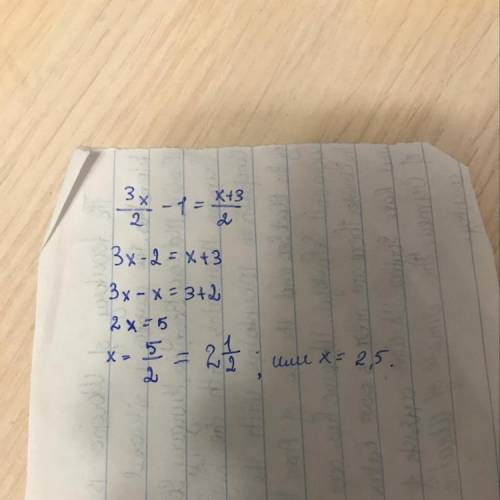 3x/2 - 1 = x+3/2
3x - 2 = x + 3
3x - x = 3 + 2
2x = 5
x = 5/2 = 2 1/2 ; или x = 2,5.